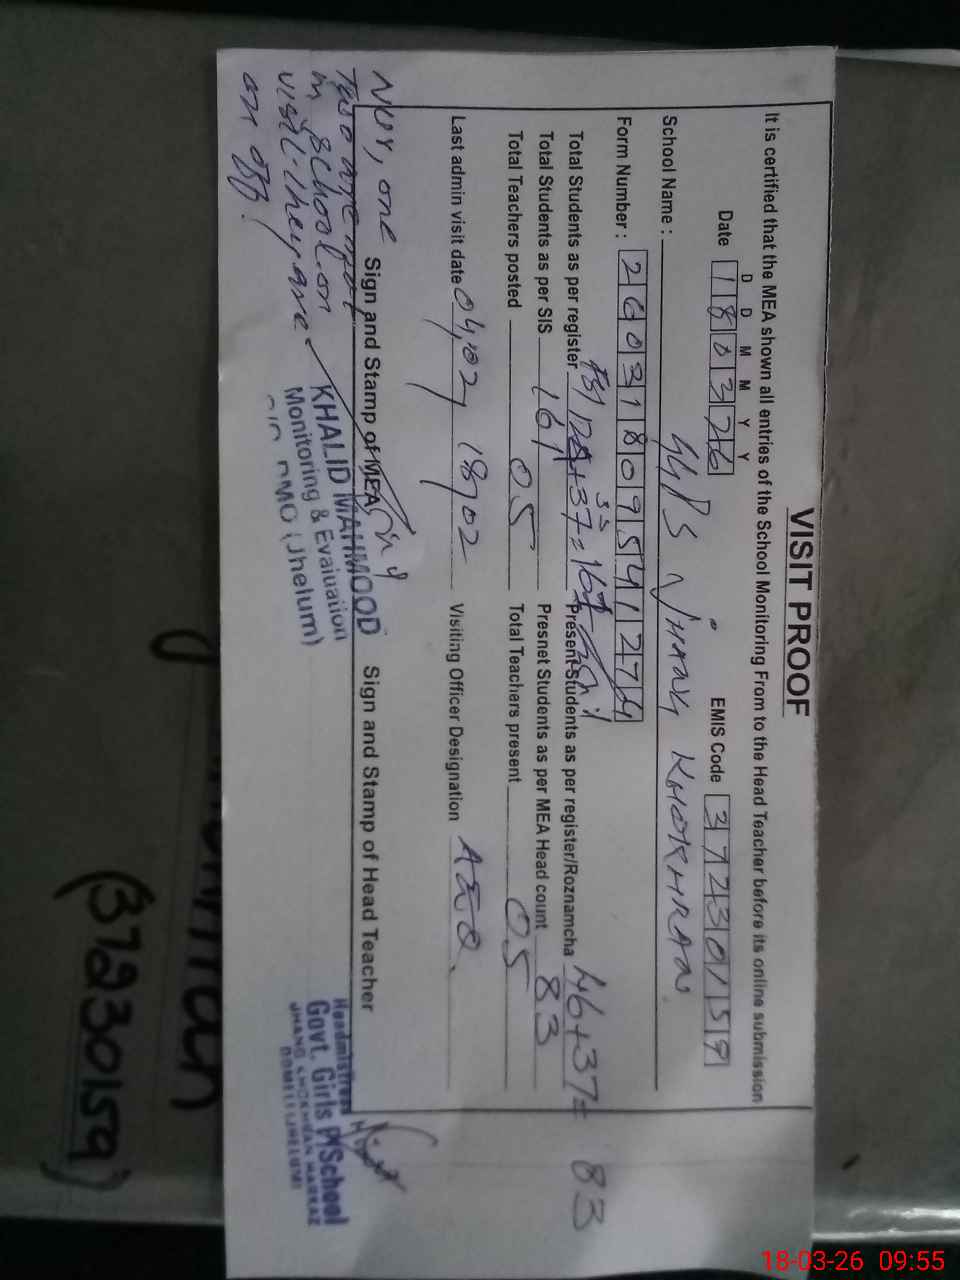 VISIT PROOF
It is certified that the MEA shown all entries of the School Monitoring From to the Head Teacher before its online submission
D D M M Y Y
Date 180326 EMIS Code 37230159
School Name : JHANG KHOKHRAN
Form Number : 260318095412
Total Students as per register +37= Present Students as per register/Roznamcha 46+37= 83
Total Students as per SIS 161 Presnet Students as per MEA Head count 83
Total Teachers posted 05 Total Teachers present 05
Last admin visit date 04/02, 18/02 Visiting Officer Designation AEO.
Sign and Stamp of MEA Sign and Stamp of Head Teacher
one
Two are not
in school on
visit. they are
on off!
KHALID MAHMOOD
Monitoring & Evaluation
DMO (Jhelum)
Headmistress
Govt. Girls P/School
JHANG KHOKHRAN MARKAZ
DOMELI (JHELUM)
(37230159)
18-03-26 09:55